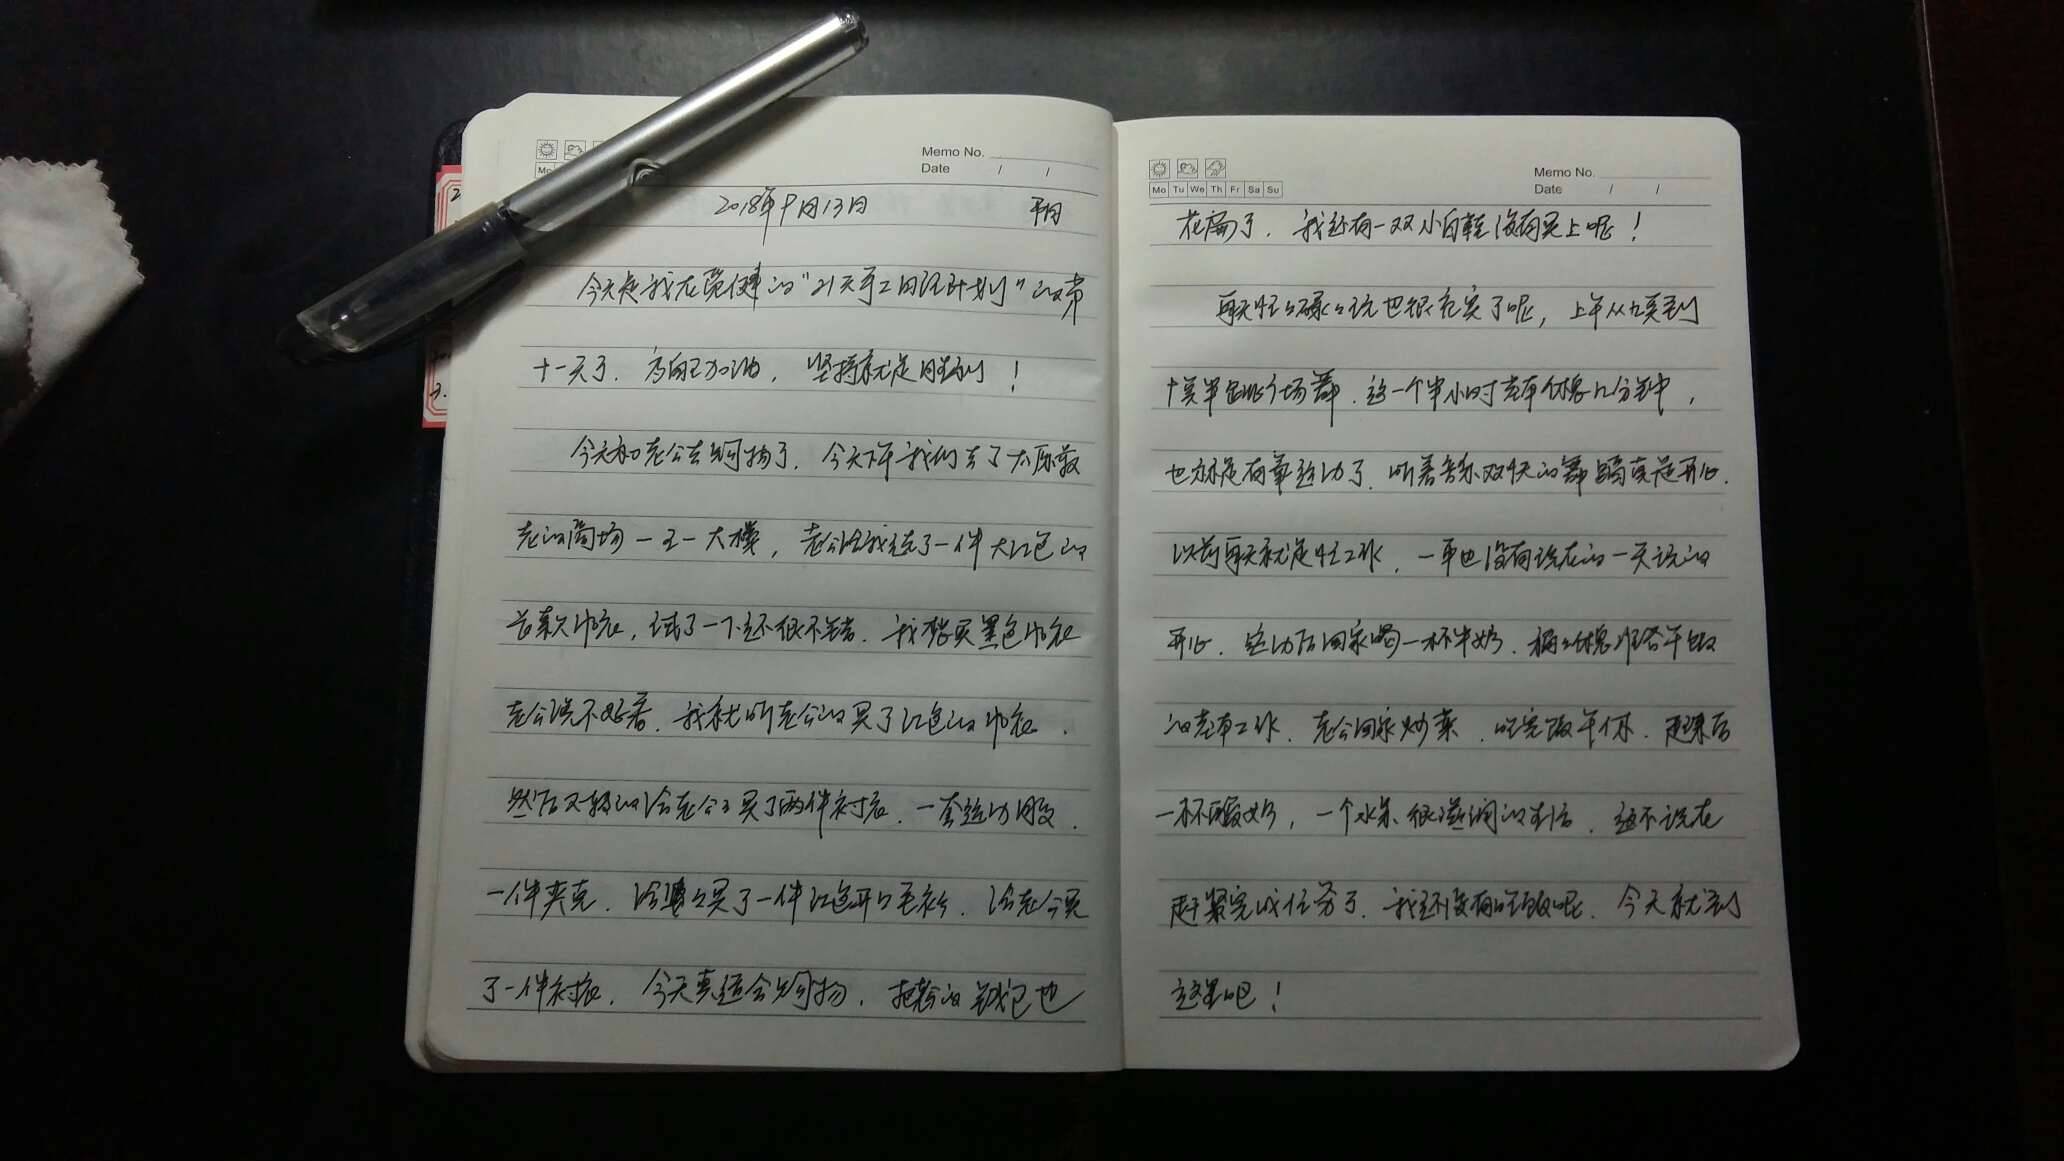 Memo No.
Date / /
Mo
2018年9月13日
今天是我在 的"21天手工日记计划"的第
十一天了，为自己加油，坚持就是胜利！
今天和老公去购物了，今天下午我们去了太原最
老的商场一五一大楼，老公给我选了一件大红色的
长款 衣，试了一下还很不错，我想买黑色 衣
老公说不好看，我就听老公的买了红色的 衣，
然后又转的给老公买了两件衬衣，一套运动服，
一件夹克，给 买了一件红色开口毛衫，给老公买
了一件衬衣，今天真适合购物，把 的钱包也
Memo No.
Date / /
Mo Tu We Th Fr Sa Su
花扁了，我还有一双小白鞋没有买上呢！
每天忙忙碌碌的 也很充实了呢，上午从九点到
十点半 跳广场舞，这一个半小时 休息几分钟，
也就是有氧运动了，听着音乐欢快的舞蹈真是开心，
以前每天就是忙工作，一 也没有现在的一天 的
开心，运动后回家喝一杯牛奶，稍 休息准备午饭
的 工作，老公回家炒菜，吃完饭午休，起来后
一杯酸奶，一个水果，很滋润的生活，这不现在
赶紧完成任务了，我还没有吃饭呢，今天就到
这里吧！